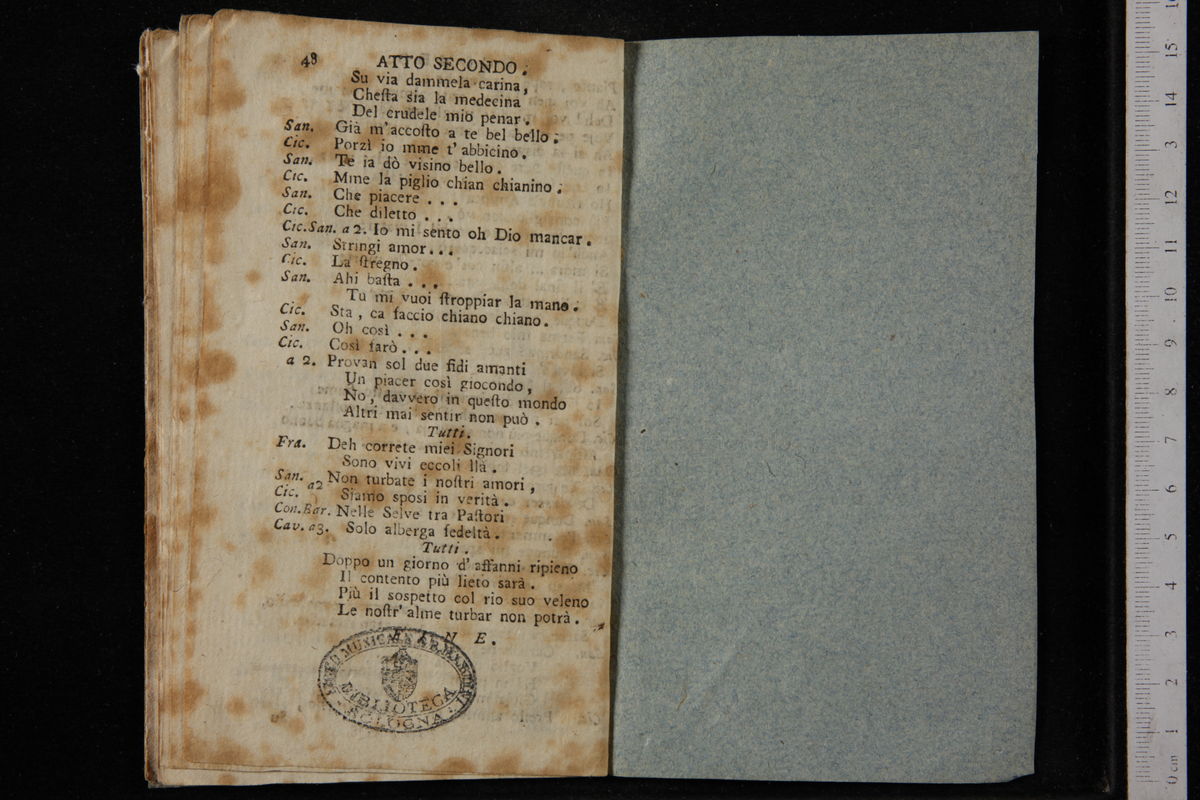 48 ATTO SECONDO.
Su via dammela carina,
Chesta sia la medecina
Del crudele mio penar.
San. Già m'accosto a te bel bello.
Cic. Porzì io mme t'abbicino.
San. Te la dò visino bello.
Cic. Mme la piglio chian chianino.
San. Che piacere . . .
Cic. Che diletto . . .
Cic.San. a 2. Io mi sento oh Dio mancar.
San. Stringi amor . . .
Cic. La stregno.
San. Ahi basta . . .
Tu mi vuoi stroppiar la mano.
Cic. Sta, ca faccio chiano chiano.
San. Oh così . . .
Cic. Così farò . . .
a 2. Provan sol due fidi amanti
Un piacer così giocondo,
No, davvero in questo mondo
Altri mai sentir non può.
Tutti.
Fra. Deh correte miei Signori
Sono vivi eccoli llà.
San. a2 Non turbate i nostri amori,
Cic. Siamo sposi in verità.
Con.Bar. Nelle Selve tra Pastori
Cav. a3. Solo alberga fedeltà.
Tutti.
Doppo un giorno d'affanni ripieno
Il contento più lieto sarà.
Più il sospetto col rio suo veleno
Le nostr'alme turbar non potrà.
FINE.
LICEO MUSICALE
BIBLIOTECA
BOLOGNA
15
14
13
12
11
10
9
8
7
6
5
4
3
2
1
0 cm